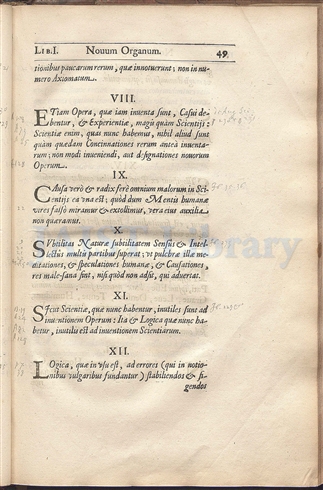 LIB. I. Novum Organum. 49
tionibus paucarum rerum, quæ innotuerunt; non in nu-
mero Axiomatum.
VIII.
ETiam Opera, quæ iam inuenta sunt, Casui de-
bentur, & Experientiæ, magis quàm Scientijs:
Scientiæ enim, quas nunc habemus, nihil aliud sunt
quàm quædam Concinnationes rerum anteà inuenta-
rum; non modi inueniendi, aut designationes nouorum
Operum.
IX.
CAusa verò & radix ferè omnium malorum in Sci-
entijs ea vna est; quòd dum Mentis humanæ
vires falsò miramur & extollimus, vera eius auxilia
non quæramus.
X.
SVbtilitas Naturæ subtilitatem Sensûs & Intel-
lectûs multis partibus superat; vt pulchræ illæ me-
ditationes, & speculationes humanæ, & Causationes,
res male-sana sint, nisi quòd non adsit, qui aduertat.
XI.
SIcut Scientiæ, quæ nunc habentur, inutiles sunt ad
inuentionem Operum: Ita & Logica quæ nunc ha-
betur, inutilis est ad inuentionem Scientiarum.
XII.
LOgica, quæ in vsu est, ad errores (qui in notio-
nibus vulgaribus fundantur) stabiliendos & fi-
gendos
Library